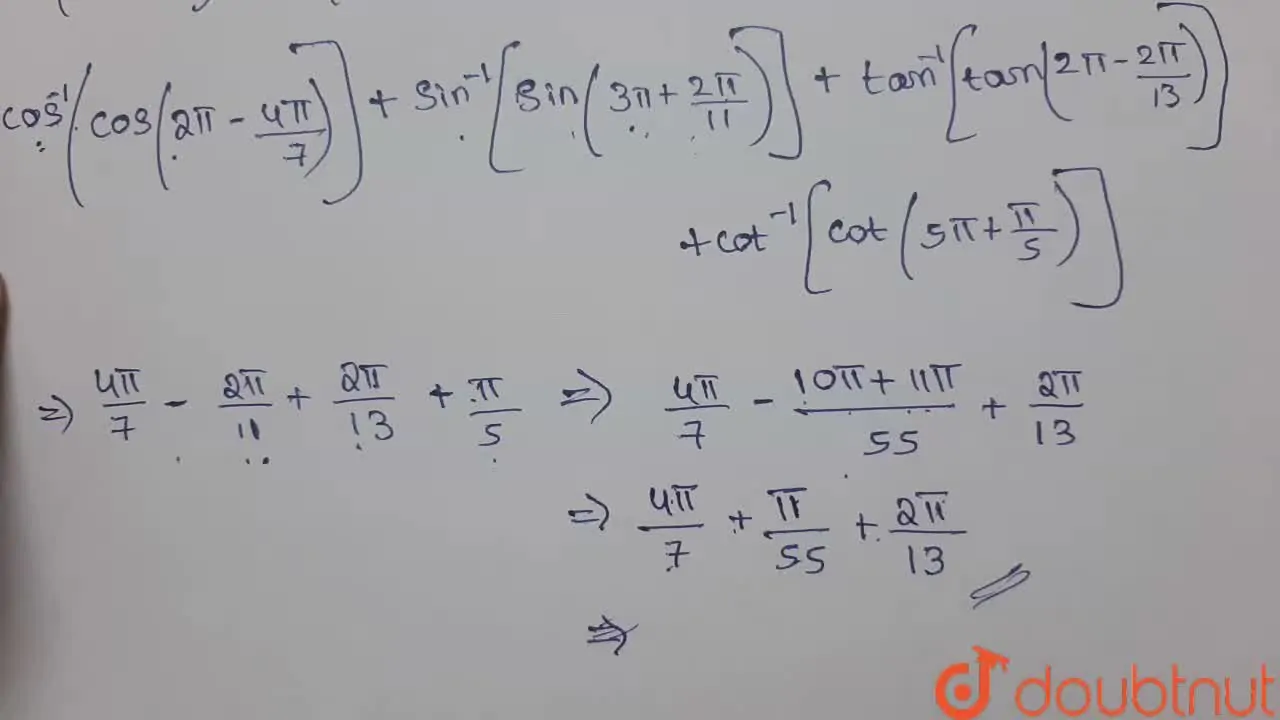 cos⁻¹(cos(2π - 4π/7)] + sin⁻¹[sin(3π + 2π/11)] + tan⁻¹[tan(2π - 2π/13)]
+ cot⁻¹[cot(5π + π/5)]
⇒ 4π/7 - 2π/11 + 2π/13 + π/5 ⇒ 4π/7 - 10π + 11π/55 + 2π/13
⇒ 4π/7 + π/55 + 2π/13
⇒
doubtnut